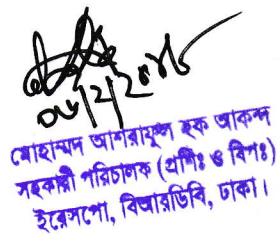 ০৬/২/২০১৮
মোহাম্মদ আশরাফুল হক আকন্দ
সহকারী পরিচালক (প্রশিঃ ও বিপঃ)
ইরেসপো, বিআরডিবি, ঢাকা।